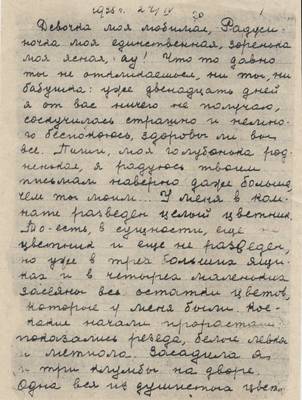 1936 г. 24/IV
Девочка моя любимая, Радуси-
ночка моя единственная, зоренька
моя ясная, ау! Что то давно
ты не откликаешься, ни ты, ни
бабушка: уже двенадцать дней
я от вас ничего не получаю,
соскучилась страшно и немно-
го беспокоюсь, здоровы ли вы
все. Пиши, моя голубонька род-
ненькая, я радуюсь твоим
письмам наверно даже больше,
чем ты моим... У меня в ком-
нате разведен целый цветник.
То-есть, в сущности, еще не
цветник и еще не разведен,
но уже в трех больших ящи-
ках и в четырех маленьких
засеяны все остатки цветов,
которые у меня были. Кое-
какие начали прорастать
показались резеда, белые левкои
и метиола. Засадила я
и три клумбы на дворе.
Одна вся из душистых цвет